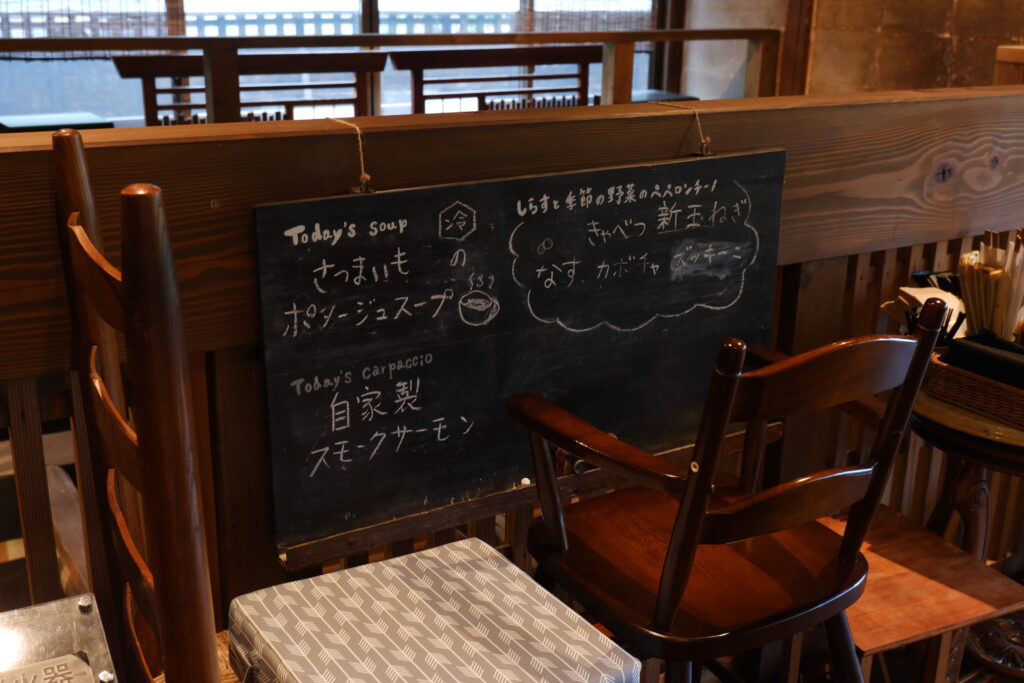 Today's soup
冷
さつまいもの
ポタージュスープ
Today's carpaccio
自家製
スモークサーモン
しらすと季節の野菜のペペロンチーノ
きゃべつ 新玉ねぎ
なす. カボチャ ズッキーニ